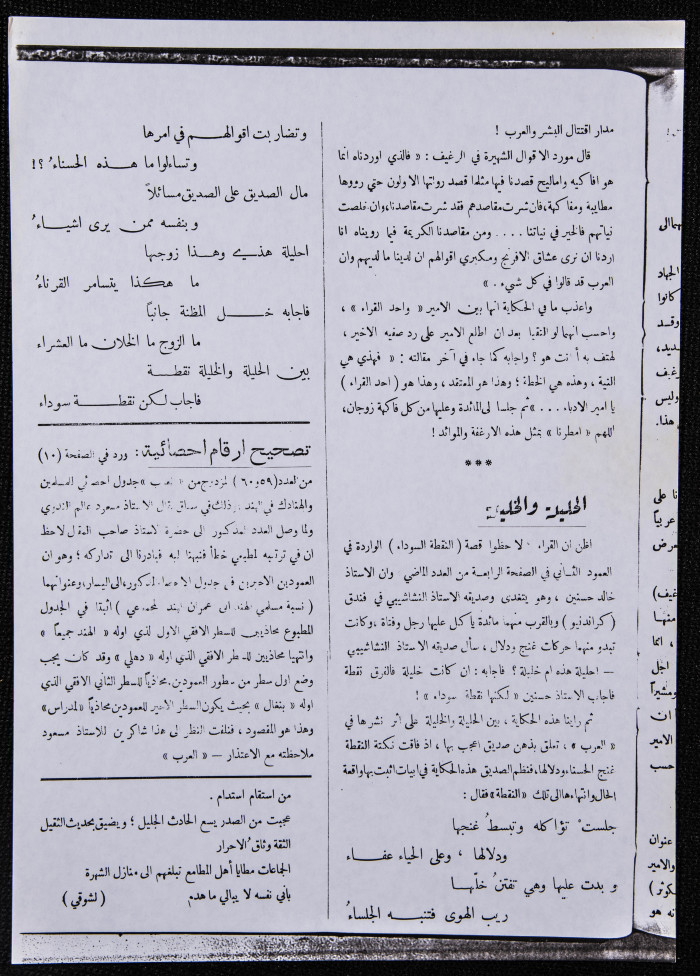 مدار اقتتال البشر والعرب !
قال مورد الاقوال الشهيرة في الرغيف : « فالذي اوردناه انما
هو افاكيه واماليح قصدنا فيها مثلما قصد رواتها الاولون حتى رووها
مطايبة ومفاكهة، فان شرت مقاصدهم فقد شرت مقاصدنا، وان خلصت
نياتهم فالخير في نياتنا .... ومن مقاصدنا الكريمة فيما رويناه انا
اردنا ان نرى عشاق الافرنج ومكبري اقوالهم ان لدينا ما لديهم وان
العرب قد قالوا في كل شيء . »
واعذب ما في الحكاية انها بين الامير « واحد القراء » ،
واحسب انهما لو التقيا بعد ان اطلع الامير على رد صفيه الاخير ،
لهتف به أ انت هو ؟ واجابه كما جاء في آخر مقالته : « فهذي هي
النية ، وهذه هي الخطة ؛ وهذا هو المعتقد ، وهذا هو ( احد القراء )
يا امير الادباء .... » ثم جلسا الى المائدة وعليها من كل فاكهة زوجان،
اللهم « امطرنا » بمثل هذه الارغفة والموائد !
***
الحليلة والخليلة
اظن ان القراء لاحظوا قصة ( النقطة السوداء ) الواردة في
العمود الثاني في الصفحة الرابعة من العدد الماضي وان الاستاذ
خالد حسنين ، وهو يتغدى وصديقه الاستاذ النشاشيبي في فندق
( كراندنيو ) وبالقرب منهما مائدة يأكل عليها رجل وفتاة ، وكانت
تبدو منهما حركات غنج ودلال ، سأل صديقه الاستاذ النشاشيبي
— احليلة هذه ام خليلة ؟ فاجابه : ان كانت خليلة فالفرق نقطة
فاجاب الاستاذ حسنين « لكنها نقطة سوداء » !
ثم راينا هذه الحكاية ، بين الحليلة والخليلة على اثر نشرها في
« العرب » ، تعلق بذهن صديق اعجب بها ، اذ فاقت نكتة النقطة
غنج الحسناء ودلالها، فنظم الصديق هذه الحكاية في ابيات اثبت بها واقعة
الحال وانتهاءها الى تلك « النقطة » فقال :
جلستْ تؤاكله وتبسطُ غنجها
ودلالها ، وعلى الحياء عفاء
وبدت عليها وهي تفتنُ خلّها
ريب الهوى فتنبه الجلساءُ
وتضاربت اقوالهم في امرها
وتساءلوا ما هذه الحسناءُ ؟!
مال الصديق على الصديق مسائلاً
وبنفسه ممن يرى اشياءُ
احليلة هذي وهذا زوجها
ما هكذا يتسامر القرناءُ
فاجابه خل المظنة جانباً
ما الزوج ما الخلان ما العشراء
بين الحليلة والخليلة نقطة
فاجاب لكن نقطة سوداء
تصحيح ارقام احصائية : ورد في الصفحة (١٠)
من العدد (٥٩ و ٦٠) المزدوج من « العرب » جدول احصائي للمسلمين
والهنادك في الهند وذلك في سياق مقال الاستاذ مسعود عالم الندوي
ولما وصل العدد المذكور الى حضرة الاستاذ صاحب المقال لاحظ
ان في ترتيبه المطبعي خطأ فنبهنا اليه فبادرنا الى تداركه ؛ وهو ان
العمودين الاخيرين في جدول الاحصاء المذكور، الى اليسار، وعنوانهما
( نسبة مسلمي الهند الى عمران الهند المجموعي ) اثبتا في الجدول
المطبوع محاذيين للسطر الافقي الاول الذي اوله « الهند جميعاً »
وانتهيا محاذيين للسطر الافقي الذي اوله « دهلي » وقد كان يجب
وضع اول سطر من سطور العمودين، محاذياً للسطر الثاني الافقي الذي
اوله « بنغال » بحيث يكون السطر الاخير للعمودين محاذياً « لمدراس »
وهذا هو المقصود ، فنلفت النظر الى هذا شاكرين للاستاذ مسعود
ملاحظته مع الاعتذار — « العرب »
من استقام استدام .
عجبت من الصدر يسع الحادث الجليل ؛ ويضيق بحديث الثقيل
الثقة وثاق الاحرار
الجماعات مطايا أهل المطامع تبلغهم الى منازل الشهرة
باني نفسه لا يبالي ما هدم ( لشوقي )
الجهاد
كانوا
وقد
وليس
هذا.
نا على
عربياً
منها
اجل
ان
الامير
حسب
عنوان
والامير
نه هو